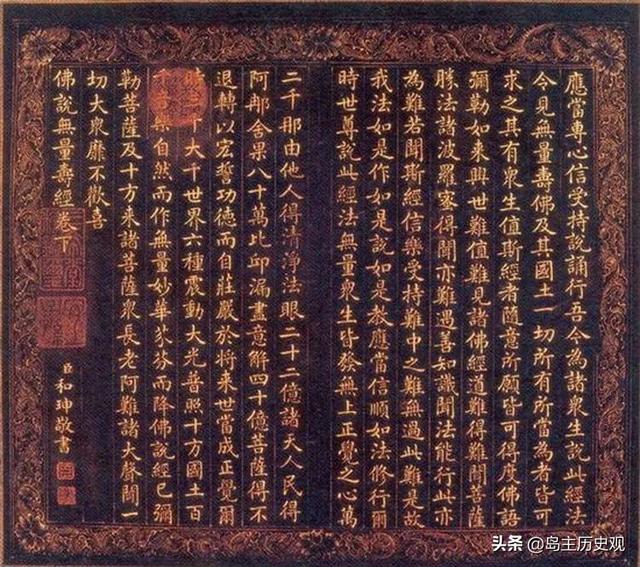 應當專心信受持說誦行吾今為諸衆生說此經法
今見無量壽佛及其國土一切所有所當為者皆可
求之其有衆生值斯經者隨意所願皆可得度佛語
彌勒如來興世難值難見諸佛經道難得難聞菩薩
勝法諸波羅蜜得聞亦難遇善知識聞法能行此亦
為難若聞斯經信樂受持難中之難無過此難是故
我法如是作如是說如是教應當信順如法修行爾
時世尊說此經法無量衆生皆發無上正覺之心萬
二千那由他人得清淨法眼二十二億諸天人民得
阿那舍果八十萬比邱漏盡意解四十億菩薩得不
退轉以宏誓功德而自莊嚴於將來世當成正覺爾
時大千世界六種震動大光普照十方國土百
千樂自然而作無量妙華芬而降佛說經已彌
勒菩薩及十方來諸菩薩衆長老阿難諸大聲聞一
切大衆靡不歡喜
佛說無量壽經卷下
臣和珅敬書
头条 @岛主历史观